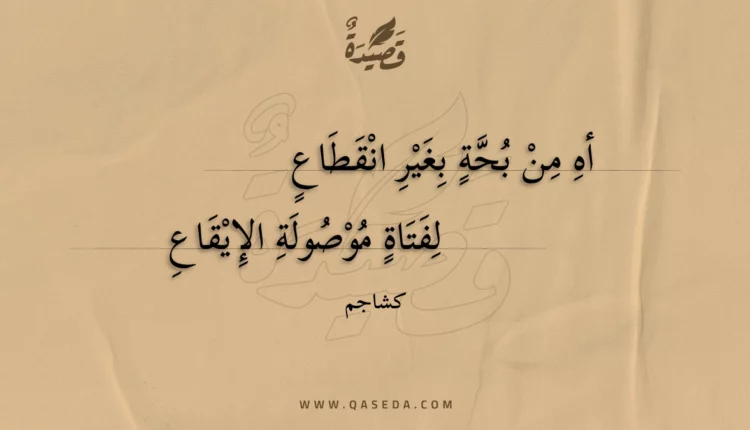 قَصِيْدَةٌ
أهِ مِنْ بُحَّةٍ بِغَيْرِ انْقَطَاعٍ
لِفَتَاةٍ مُوْصُولَةِ الإِيْقَاعِ
كشاجم
WWW.QASEDA.COM